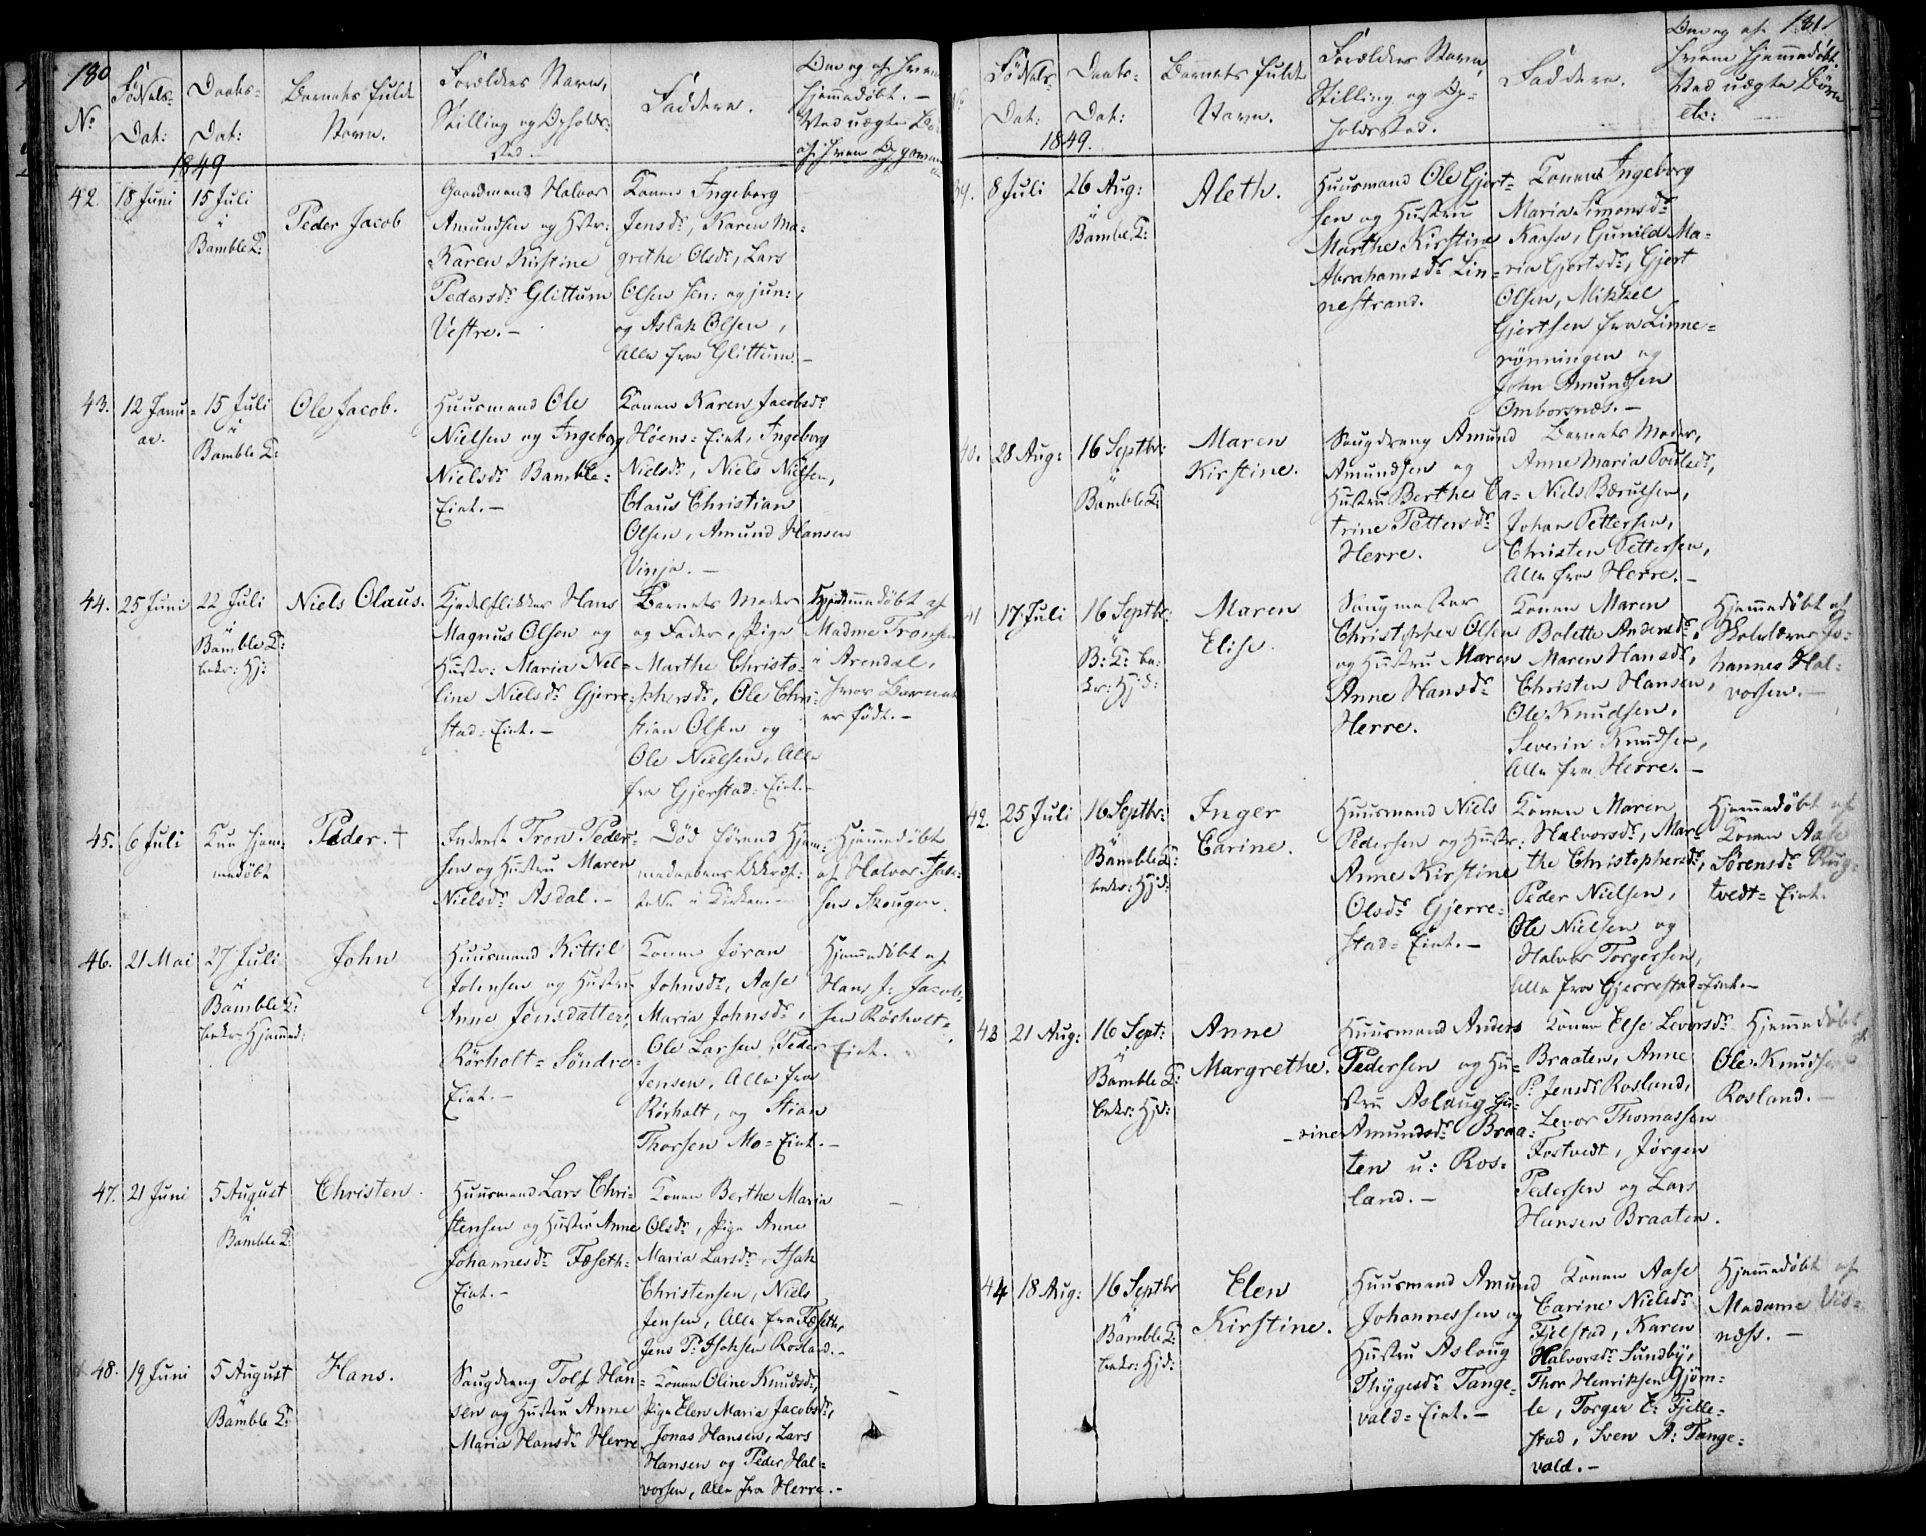 180
No
Fødsels-
Dat:
Daabs-
Dat:
Barnets fulde
Navn.
Forældres Navn,
Stilling og Opholds-
sted.
Faddere.
Om og af hvem
hjemmedøbt. -
1849
42.
18 Juni
15 Juli
i
Bamble K:
Peder Jacob
Gaardmand Halvor
Amundsen og Hstr:
Karen Kirstine
Pedersdr. Glittum
Vestre. -
Konen Ingeborg
Jensdr., Karen Ma-
grethe Olsdr., Lars
Olsen sen: og jun:,
og Aslak Olsen,
Alle fra Glittum. -
43.
12 Janu-
ar.
15 Juli
i
Bamble K:
Ole Jacob.
Huusmand Ole
Nielsen og Ingeborg
Nielsdr. Bamble-
Eiet. -
Konen Karen Jacobsdr.
Höens-Eiet, Ingeborg
Nielsdr., Niels Nielsen,
Claus Christian
Olsen, Amund Hansen
Vinje. -
44.
25 Juni
22 Juli
i
Bamble K:
bekr: Hj:
Niels Olaus.
Kjedelflikker Hans
Magnus Olsen og
Hustr: Maria Nel-
line Nielsdr. Gjerre-
stad-Eiet. -
Barnets Moder
og Fader, Pige
Marthe Christo-
phersdr., Ole Chri-
stian Olsen og
Ole Nielsen, Alle
fra Gjerstad-Eiet. -
Hjemmedøbt af
Madme Tronsen
i Arendal,
hvor Barnet
er født. -
45.
6 Juli
Kun hjem-
medøbt
Peder. +
Inderst Tron Peder-
sen og Hustru Maren
Nielsdr. Asdal. -
Død førend Hjem-
medaabens Bekræf-
telse i Kirken. -
Hjemmedøbt
af Halvor Isak-
sen Skougen.
46.
21 Mai
27 Juli
i
Bamble K:
bekr: Hjemmed:
John
Huusmand Kittil
Johnsen og Hustru
Anne Jensdatter,
Rörholt-Söndre-
Eiet. -
Konen Jöran
Johnsdr., Aase
Maria Johnsdr.,
Ole Larsen, Peder
Jensen, Alle fra
Rörholt, og Stian
Thorsen Mo-Eiet. -
Hjemmedøbt af
Hans J: Jacob-
sen Rörholt-
Eiet.
47.
21 Juni
5 August
i
Bamble K:
Christen.
Huusmand Lars Chri-
stensen og Hustru Anne
Johannesdr. Foseth-
Eiet. -
Konen Berthe Maria
Olsdr., Pige Anne
Maria Larsdr., Isak
Christensen, Niels
Jensen, Alle fra Foseth,
Jens P. Isaksen Rosland. -
-
48.
19 Juni
5 August
i
Bamble K:
Hans.
Saugdreng Tolf Han-
sen og Hustru Anne
Maria Hansdr. Herre
Konen Oline Knudsdr.,
Pige Elen Maria Jacobsdr.,
Jonas Hansen, Lars
Hansen og Peder Hal-
vorsen, Alle fra Herre. -
-
181.
Fødsels-
Dat:
Daabs-
Dat:
Barnets fulde
Navn.
Forældres Navn,
Stilling og Op-
holdssted.
Faddere.
Om og af
hvem hjemmedøbt.
Ved uægte Børn
etc:
1849.
39.
8 Juli
26 Aug:
i
Bamble K:
Aleth.
Huusmand Ole Gjert-
sen og Hustru
Marthe Kirstine
Abrahamsdr. Lin-
nestrand.
Konen Ingeborg
Maria Simonsdr.
Kaasa, Gunild Ma-
ria Gjertsdr., Gjert
Olsen, Mikkel
Gjertsen fra Linne-
rönningen og
John Amundsen
Omborsnæs. -
40.
28 Aug:
16 Septbr:
i
Bamble K:
Maren
Kirstine.
Saugdreng Amund
Amundsen og
Hustru Berthe Ca-
trine Pettersdr.
Herre.
Barnets Moder,
Anne Maria Poulsdr.,
Niels Bærulsen,
Johan Pettersen,
Christen Pettersen,
Alle fra Herre. -
41
17 Juli
16 Septbr:
i
B: K: be-
kr: Hjd:
Maren
Elise.
Saugmester
Christopher Olsen
og Hustru Maren
Anne Hansdr.
Herre.
Konen Maren
Bolette Andersdr.,
Maren Hansdr.,
Christen Hansen,
Ole Knudsen,
Severin Knudsen,
Alle fra Herre. -
Hjemmedøbt af
Skolelærer Jo-
hannes Hal-
vorsen. -
42.
25 Juli
16 Septbr:
i
Bamble K:
bekr: Hjd:
Inger
Carine.
Huusmand Niels
Pedersen og Hustr:
Anne Kirstine
Olsdr. Gjerre-
stad-Eiet. -
Konen Maren
Halvorsdr., Mar-
the Christophersdr.,
Peder Nielsen,
Ole Nielsen og
Halvor Torgersen,
Alle fra Gjerrestad-Eiet. -
Hjemmedøbt af
Konen Aase
Sörensdr. Rug-
tvedt-Eiet.
43
21 Aug:
16 Sept:
i
Bamble K:
bekr: Hjd:
Anne
Margrethe.
Huusmand Anders
Pedersen og Hu-
stru Aslaug Gu-
rine Amundsdr. Braa-
ten u: Ros-
land. -
Konen Else Leversdr.
Braaten, Anne
P. Jensdr. Rosland,
Levor Thomassen
Fostvedt, Jørgen
Pedersen og Lars
Hansen Braaten.
Hjemmedøbt af
Ole Knudsen
Rosland. -
44
18 Aug:
16 Septbr
i
Bamble K:
bekr: Hjd:
Elen
Kirstine.
Huusmand Amund
Johannessen og
Hustru Aslaug
Thygesdr. Tange-
vald-Eiet. -
Konen Aase
Carine Nielsdr.
Fjelstad, Karen
Halvorsdr. Sundby,
Thor Henriksen Gjöm-
le, Torger E: Fjelle-
stad, Sven A: Tange-
vald. -
Hjemmedøbt af
Madame Vis-
næss. -